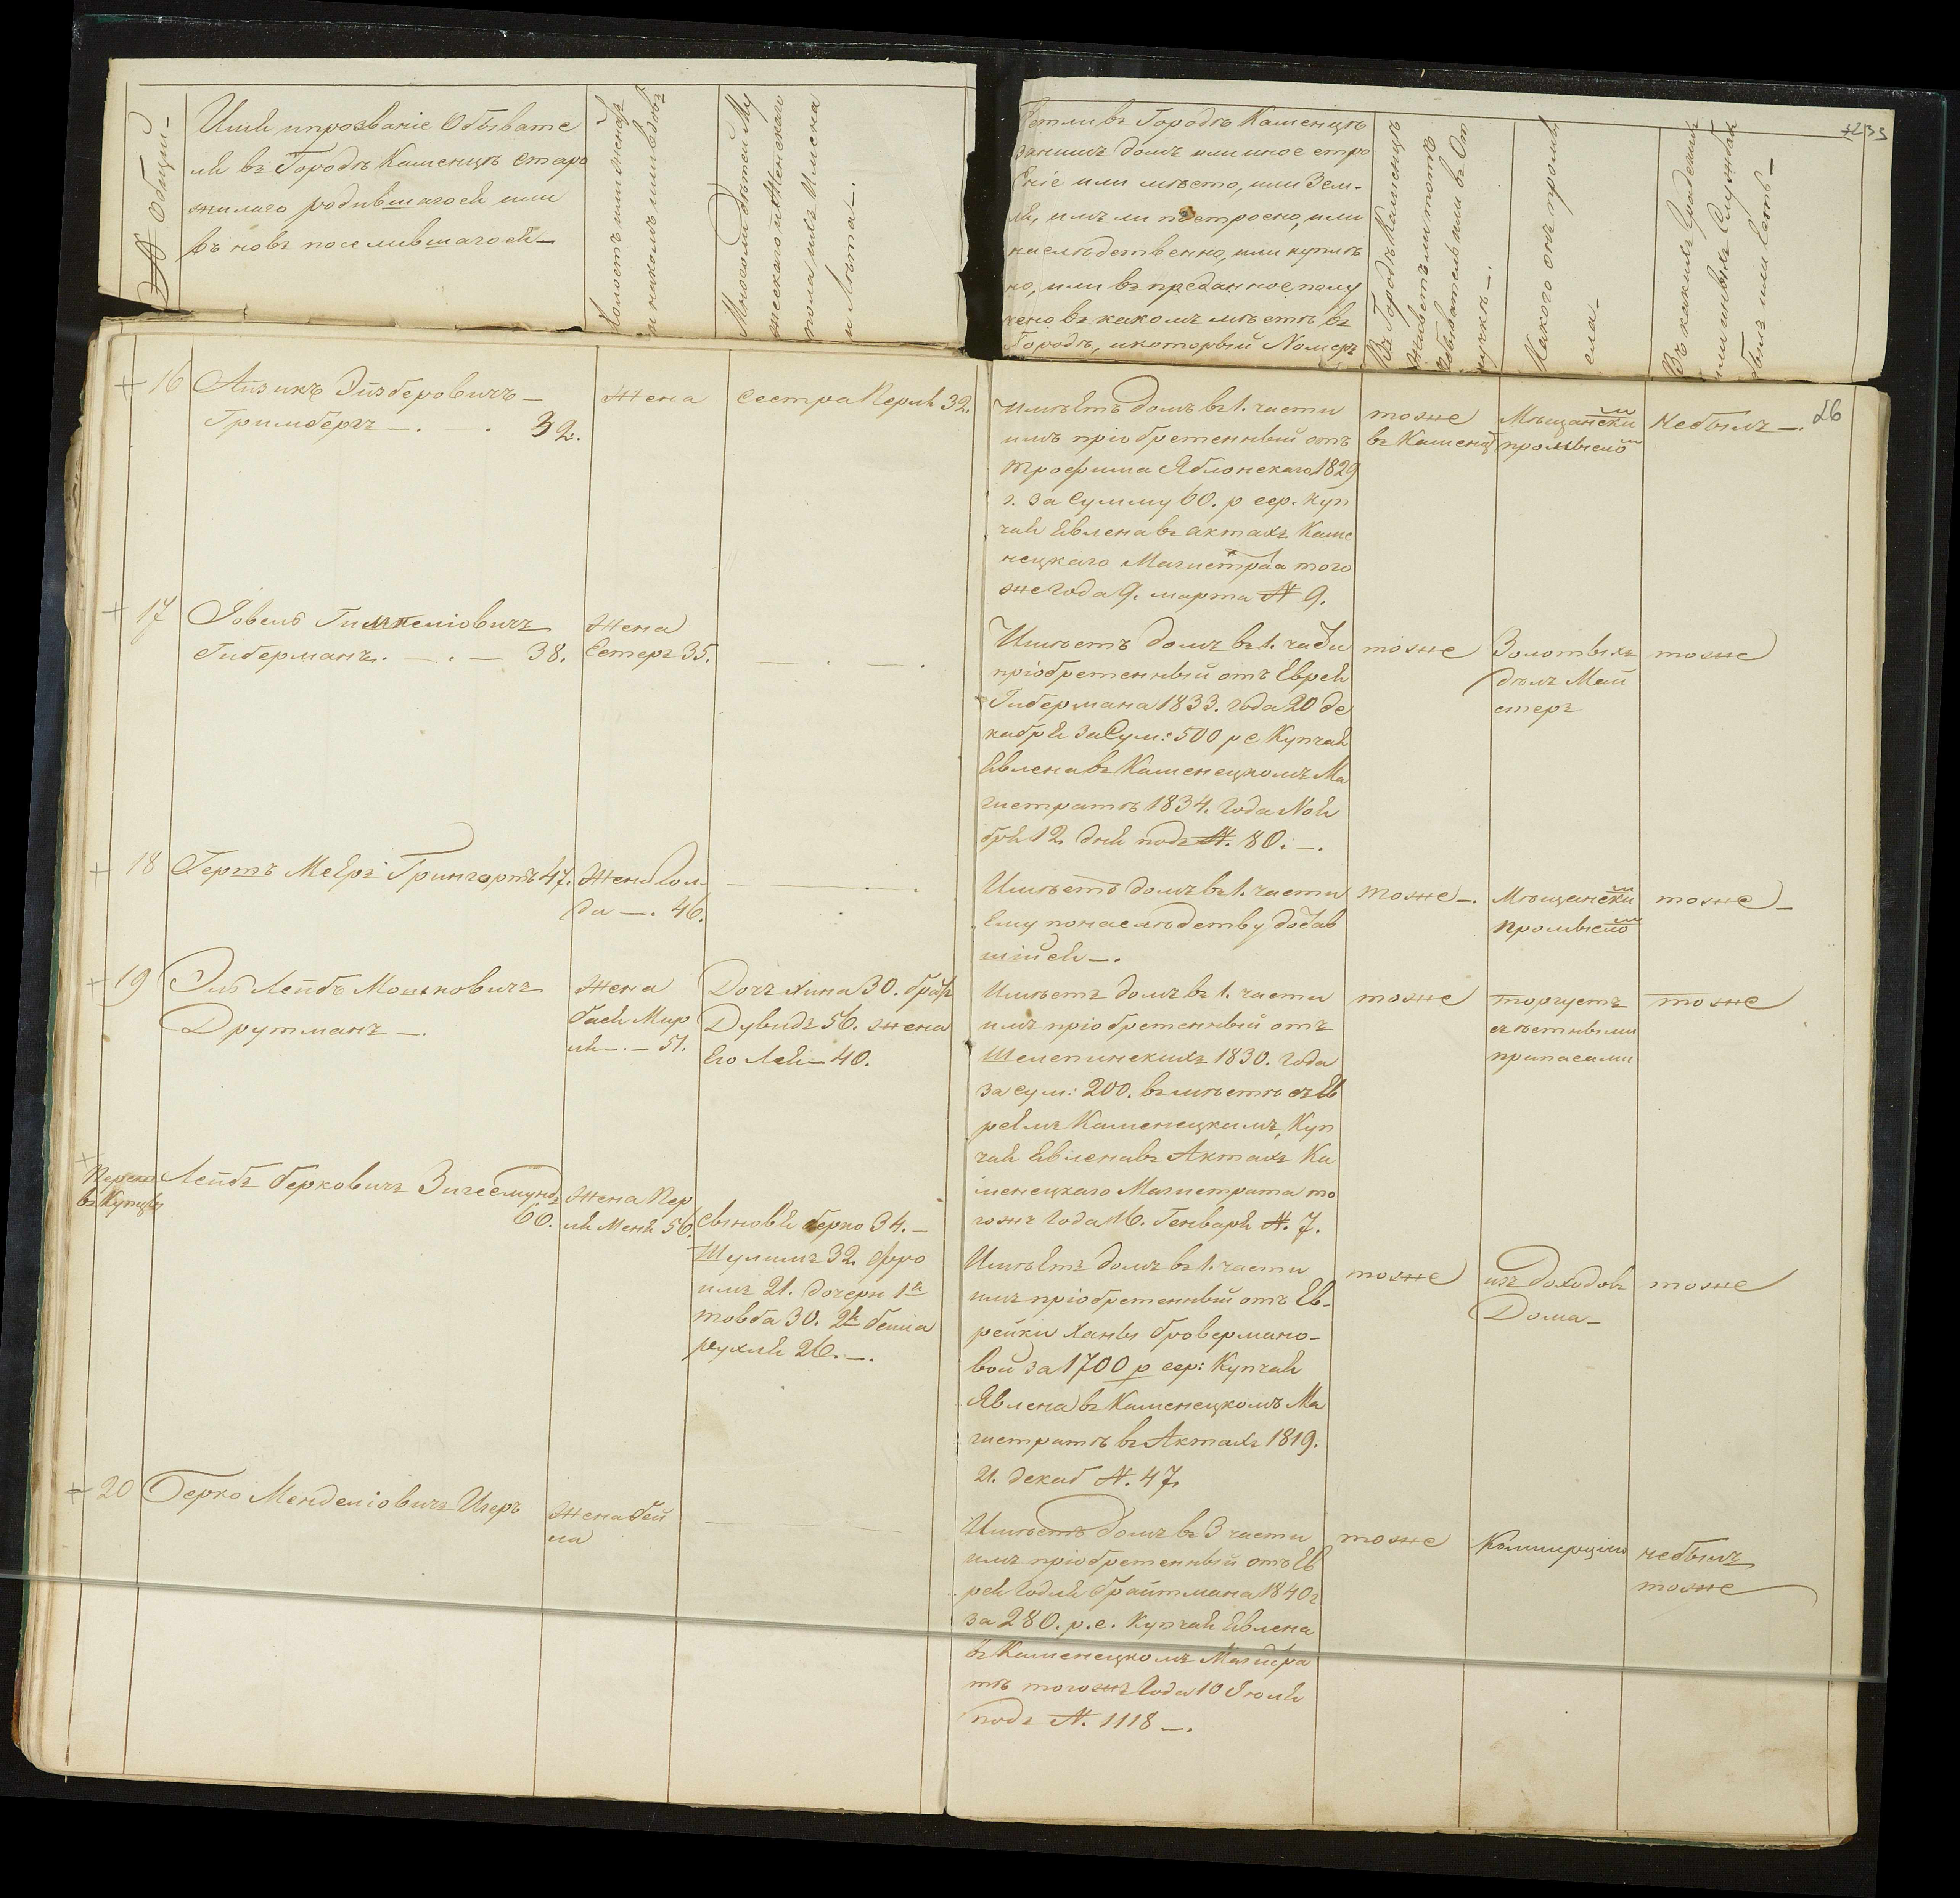 № Общій
Имя и прозваніе Обывате
ля въ Городѣ Каменцѣ старо
жилаго родившагося или
въ новѣ поселившагося —
Холостъ или женатъ
и накомъ или вдовъ
Много ли дѣтей Му
жескаго и Женскаго
пола ихъ Имена
и Лѣта —.
Естли въ Городѣ Каменцѣ
за нимъ домъ или иное стро
Еніе или мѣсто, или Зем-
ля, имъ ли построено, или
наслѣдственно, или куплѣ
но, или въ преданное полу
чено въ какомъ мѣстѣ въ
Городѣ, и который Номеръ
Въ Городѣ Каменцѣ
живетъ ли тотъ
обыватель или въ От
лучкѣ —.
Какого онъ промы
сла —
Въ какихъ Градскихъ
или иныхъ Службахъ
былъ или Есть —
26
+ 16
Айзикъ Эйзберовичъ —
Гримбергъ —. —. 32.
Жена
сестра Перля 32.
ИмѣЕтъ домъ въ 1. части
имъ пріобретенный отъ
трофима Яблонскаго 1829
г. за Сумму 60. р сер. Куп
чая Евлена въ актахъ Каме
нецкаго Магистрата того
же года 9. марта № 9.
тоже
въ Каменцѣ
Мѣщанским
промысломъ
Небылъ —.
+ 17
Іовель Гимпеліовичъ
Гиберманъ. —. — 38.
Жена
Естеръ 35.
— . — .
Имѣетъ домъ въ 1. части
пріобретенный отъ Еврея
Гибермана 1833. года 20 де
кабря за Сум: 500 р с Купчая
Евлена въ Каменецкомъ Ма
гистратѣ 1834. года Ноя
бря 12. дня подъ №. 80. —.
тоже
Золотыхъ
дѣлъ Май
стеръ
тоже
+ 18
Гертъ МеЕръ Грингартъ 47.
Жена Гол
да —. 46.
Имѣетъ домъ въ 1. части
Ему понаслѣдству достав
шійся —.
Тоже —.
Мѣщанским
Промысломъ
тоже —
+ 19
Эль Лейбъ Мошковичъ
Друтманъ —.
Жена
бася Мир
ля —. — 51.
Дочъ Хина 30. братъ
Дувидъ 56. жена
Его Лея — 40.
Имѣетъ домъ въ 1. части
имъ пріобретенный отъ
Шелепинскихъ 1830. года
за сум: 200. въмѣстѣ съ Ев
реЕмъ Каменецкимъ, Куп
чая Евлена въ Актахъ Ка
менецкаго Магистрата то
гожъ года 16. Генваря №. 7.
тоже
торгуетъ
съѣстными
припасами
тоже
+
въ Купцы
Лейбъ берковичъ Зигесмундъ
60.
Жена Пер
ля Меня 56.
сыновья берко 34. —
Шулимъ 32. фро
имъ 21. дочери 1я
товба 30. 2я
рухля 26. —.
ИмѣЕтъ домъ въ 1. части
имъ пріобретенный отъ Ев-
рейки Ханы бровермано-
вой за 1700 р сер: Купчая
Явлена въ Каменецкомъ Ма
гистратѣ въ Актахъ 1819.
21. декаб №. 47.
тоже
изъ доходовъ
Дома —
тоже
+ 20
Берко Менделіовичъ Изеръ
Жена бей
ла
Имѣетъ домъ въ 3 части
имъ пріобретенный отъ Ев
рея Годля брайтмана 1840 г
за 280. р. с. Купчая Евлена
въ Каменецкомъ Магистра
тѣ тогожъ года 10 Іюля
подъ №. 1118 —.
тоже
небылъ
тоже